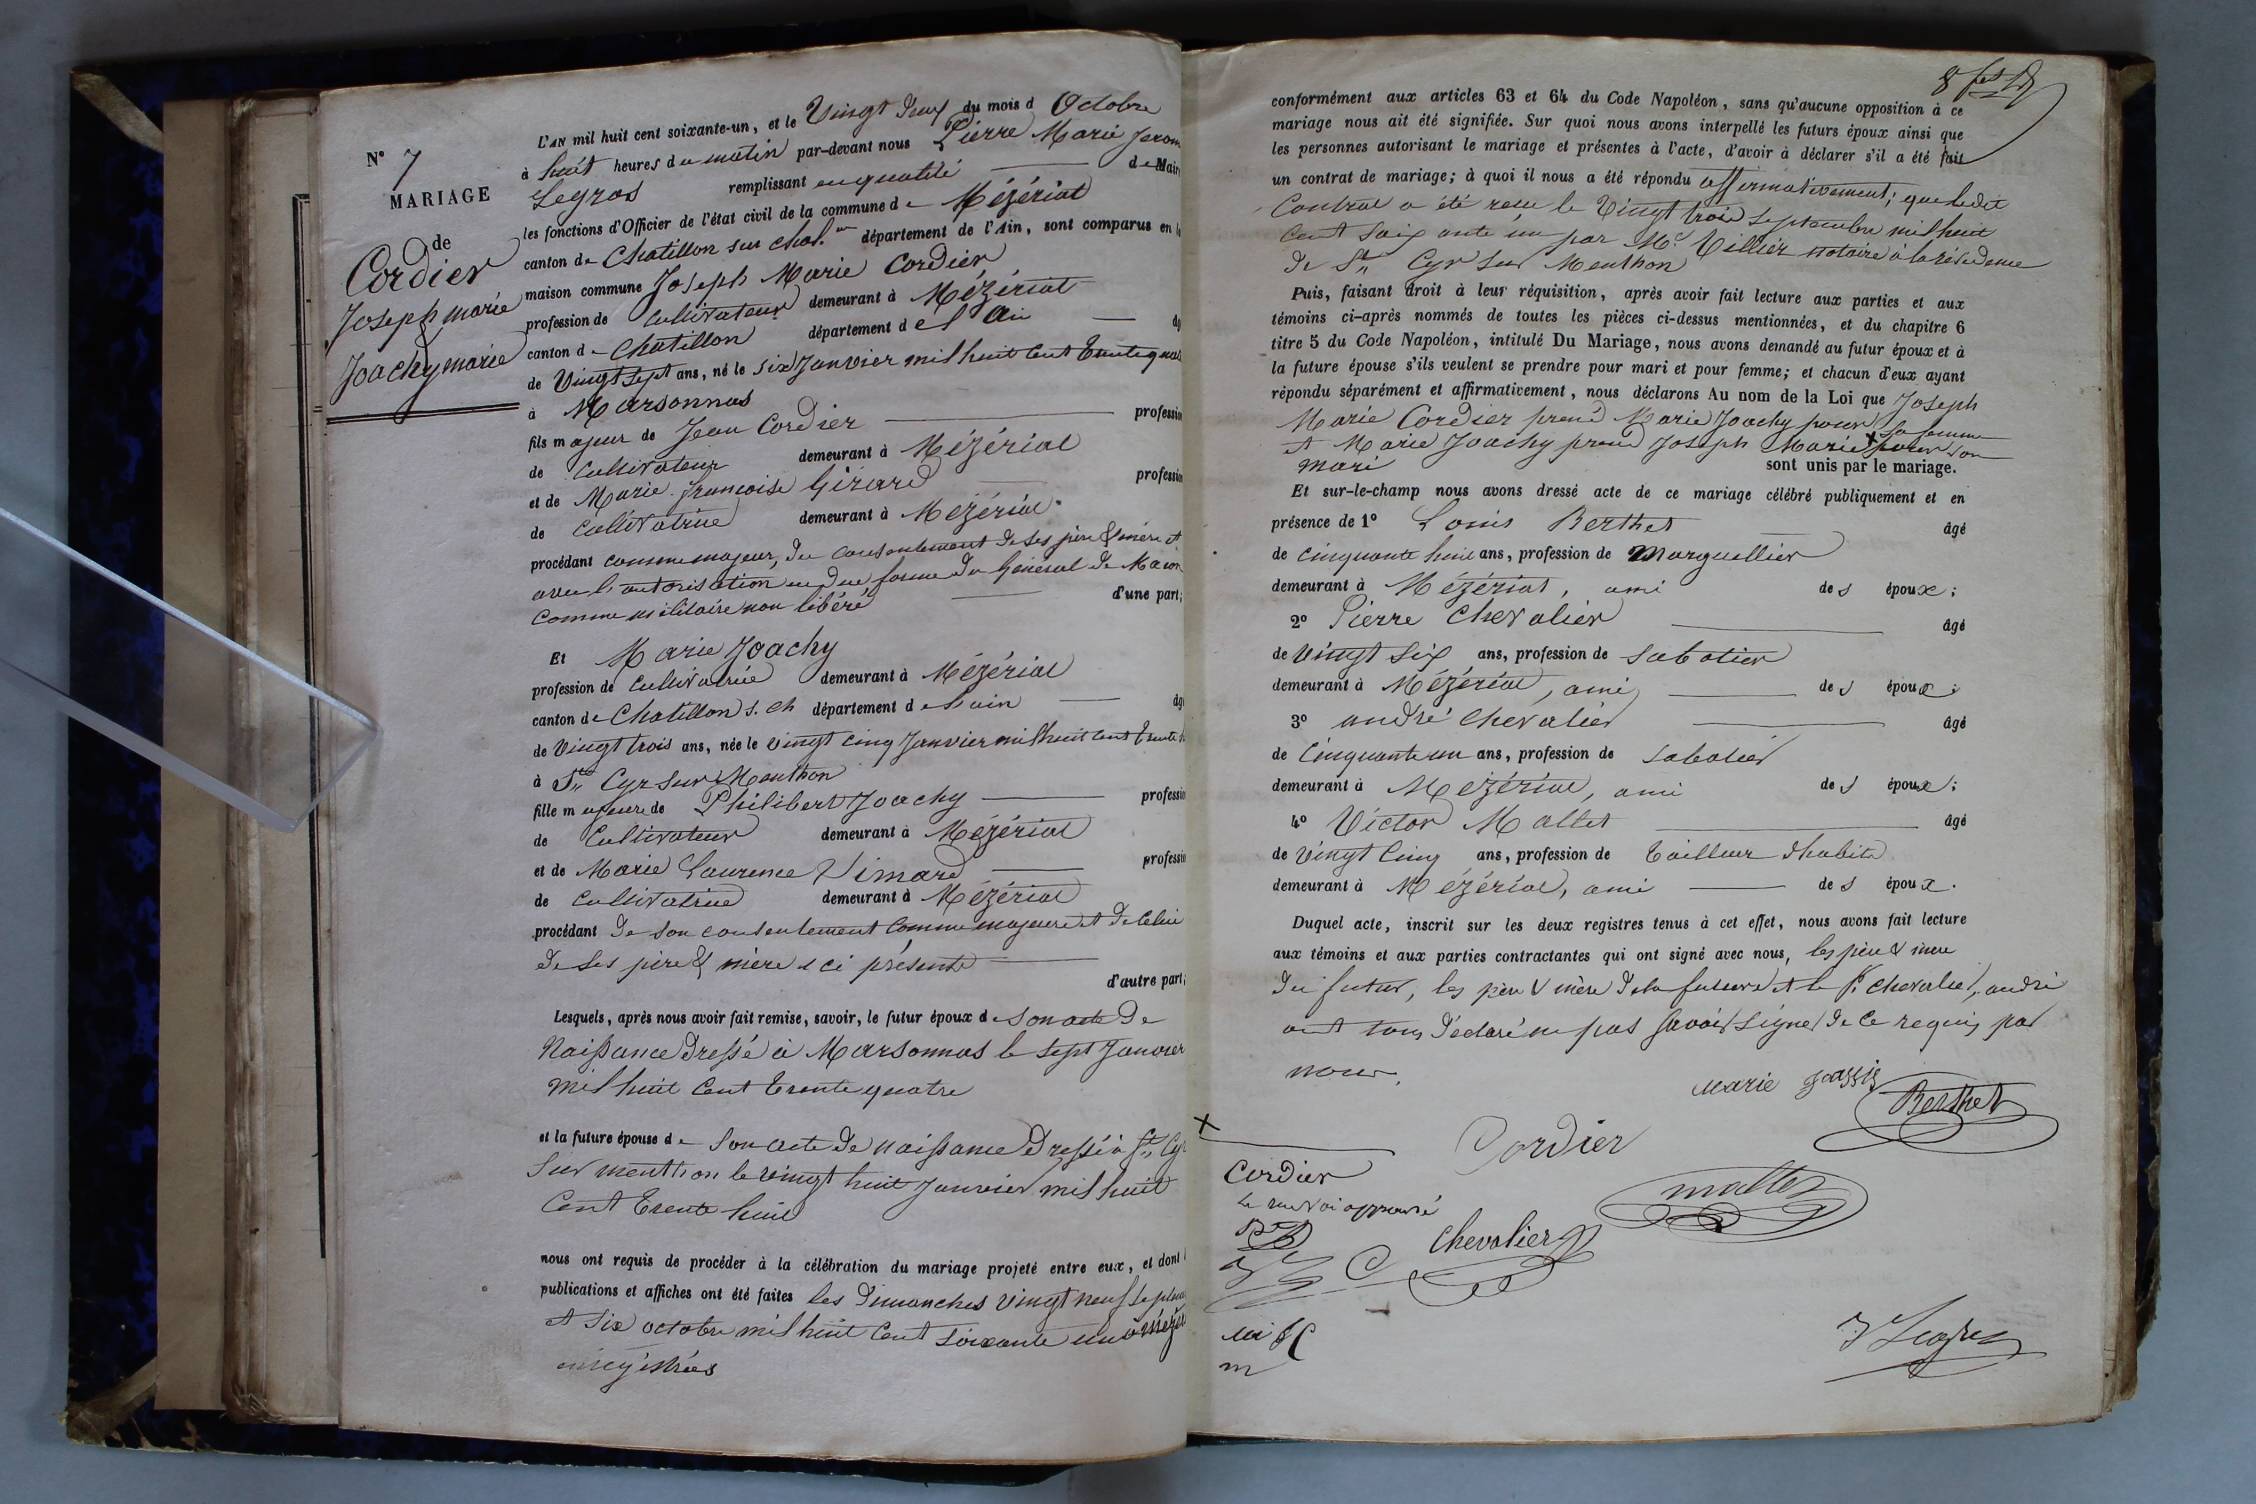 N° 7
MARIAGE
de
Cordier
Joseph marie
&
Joachy marie
L'AN mil huit cent soixante-un, et le Vingt deux du mois d Octobre
à huit heures du matin par-devant nous Pierre Marie Jerom
Legros remplissant en qualité de Mair
les fonctions d'Officier de l'état civil de la commune de Mézériat
canton de Chatillon sur Chal.ne département de l'Ain, sont comparus en l
maison commune Joseph Marie Cordier
profession de Cultivateur demeurant à Mézériat
canton de Chatillon département de l'Ain âg
de Vingt Sept ans, né le six Janvier mil huit Cent Trente quat
à Marsonnas
fils majeur de Jean Cordier professio
de Cultivateur demeurant à Mézériat
et de Marie françoise Gérard professio
de Cultivatrice demeurant à Mézériat
procédant comme majeur, du consentement de ses père & mère et
avec l'autorisation en due forme du Général de Macon
comme militaire non libéré d'une part;
Et Marie Joachy
profession de Cultivatrice demeurant à Mézériat
canton de Chatillon s. Ch département de l'ain âg
de Vingt trois ans, née le vingt cinq Janvier mil huit cent trente
à St Cyr sur Menthon
fille majeure de Philibert Joachy professio
de Cultivateur demeurant à Mézériat
et de Marie Laurence Vimard professio
de Cultivatrice demeurant à Mézériat
procédant de son consentement comme majeure et de celui
de ses père & mère ici présents
d'autre part;
Lesquels, après nous avoir fait remise, savoir, le futur époux de son acte de
Naissance dressé à Marsonnas le sept Janvier
mil huit Cent Trente quatre
et la future épouse de son acte de naissance dressé à St Cyr
sur menthon le vingt huit Janvier mil huit
Cent Trente huit
nous ont requis de procéder à la célébration du mariage projeté entre eux, et dont l
publications et affiches ont été faites les dimanches vingt neuf septem
et six octobre mil huit Cent soixante un à Mézér
enregistrées
conformément aux articles 63 et 64 du Code Napoléon, sans qu'aucune opposition à ce
mariage nous ait été signifiée. Sur quoi nous avons interpellé les futurs époux ainsi que
les personnes autorisant le mariage et présentes à l'acte, d'avoir à déclarer s'il a été fait
un contrat de mariage; à quoi il nous a été répondu affirmativement; que ledit
Contrat a été reçu le Vingt trois septembre mil huit
Cent Soixante un par Me Villier notaire à la résidence
de St Cyr sur Menthon
Puis, faisant droit à leur réquisition, après avoir fait lecture aux parties et aux
témoins ci-après nommés de toutes les pièces ci-dessus mentionnées, et du chapitre 6
titre 5 du Code Napoléon, intitulé Du Mariage, nous avons demandé au futur époux et à
la future épouse s'ils veulent se prendre pour mari et pour femme; et chacun d'eux ayant
répondu séparément et affirmativement, nous déclarons Au nom de la Loi que Joseph
Marie Cordier prend Marie Joachy pour sa femme
et Marie Joachy prend Joseph Marie × pour son
mari sont unis par le mariage.
Et sur-le-champ nous avons dressé acte de ce mariage célébré publiquement et en
présence de 1° Louis Berthet âgé
de cinquante huit ans, profession de Marguillier
demeurant à Mézériat, ami des époux;
2° Pierre Chevalier âgé
de Vingt Six ans, profession de sabotier
demeurant à Mézériat, ami des époux;
3° andré Chevalier âgé
de Cinquante un ans, profession de sabotier
demeurant à Mézériat, ami des époux;
4° Victor Mallet âgé
de Vingt Cinq ans, profession de tailleur d'habits
demeurant à Mézériat, ami des époux.
Duquel acte, inscrit sur les deux registres tenus à cet effet, nous avons fait lecture
aux témoins et aux parties contractantes qui ont signé avec nous, les père & mère
du futur, les père & mère de la future et le Sr. Chevalier, andré
ont tous déclaré ne pas savoir signer de ce requis par
nous.
Marie Joassis
Berthet
Cordier
×
Cordier
le renvoi approuvé
mallet
Chevalier
J Legros